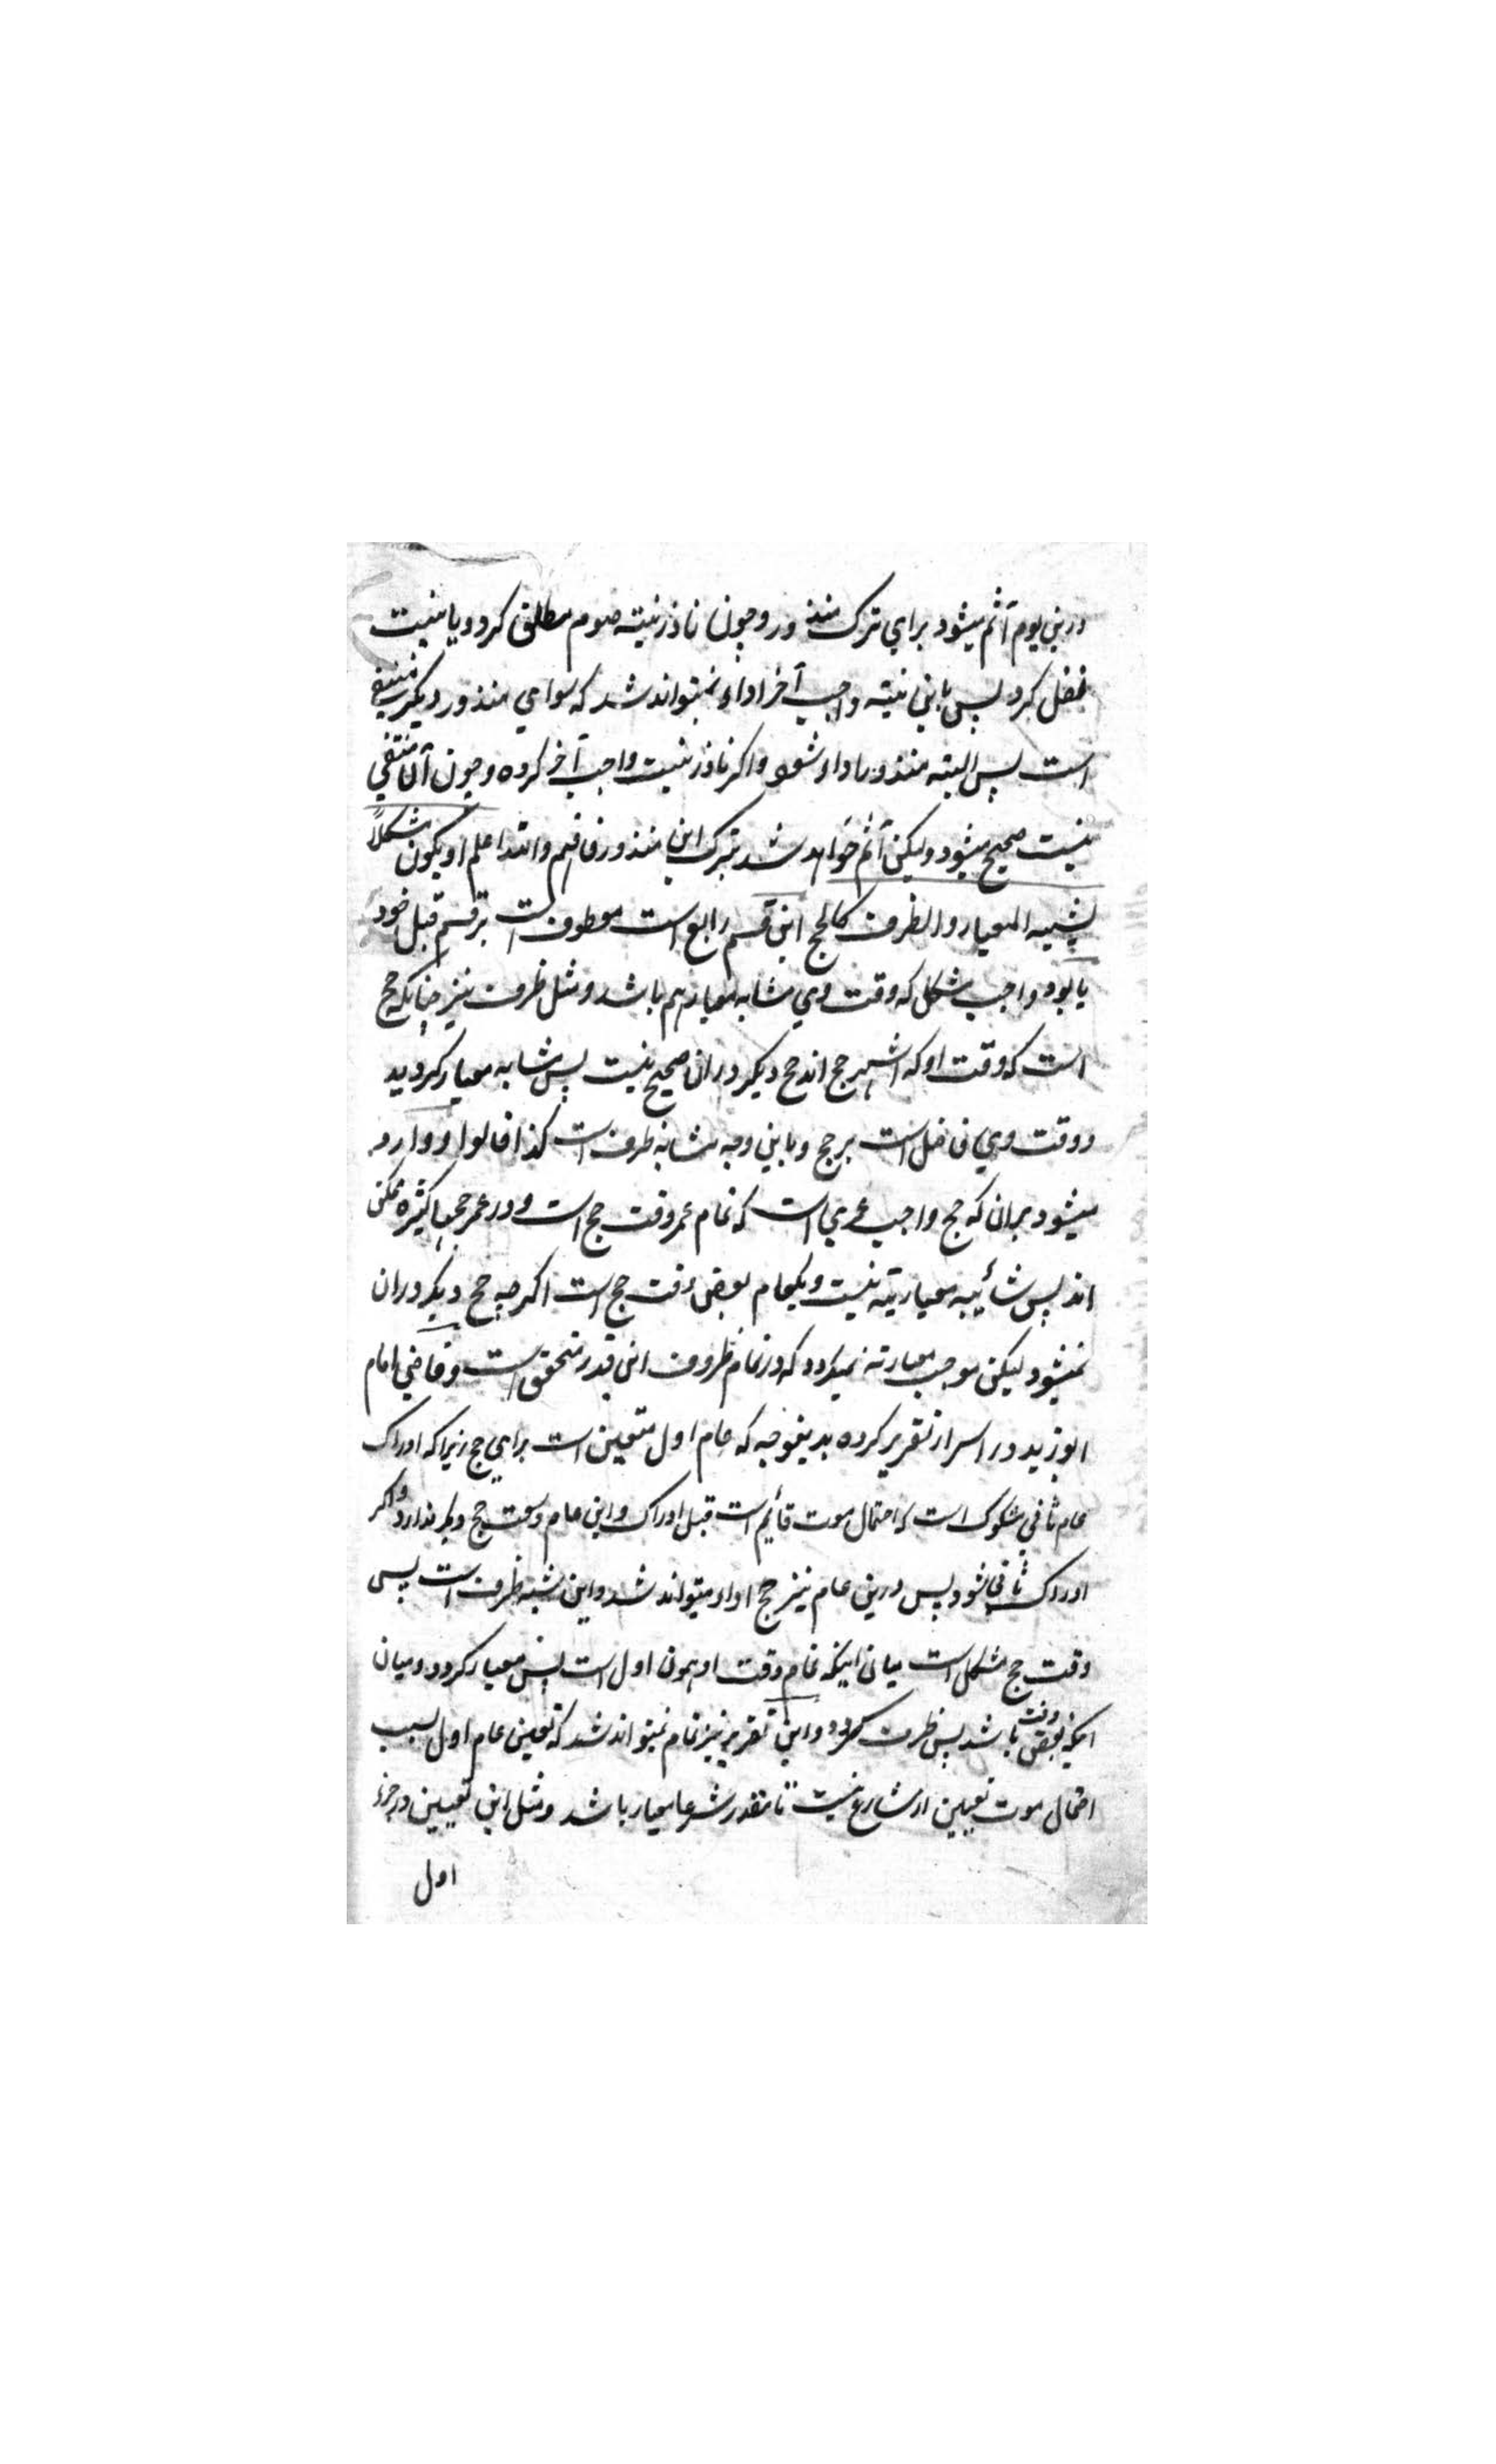 درین یوم آثم میشود برای ترک منذور و چون ناذر نیته صوم مطلق کرد و یا نیت
نفل کرد پس باین نیته واجب آخر اداء نمیتواند شد که سوای منذور دیگر منتفی
است پس البته منذور اداء شود و اکر ناذر نیت واجب آخر کرده و چون آن منتفی
نیست صحیح میشود ولیکن آثم خواهد شد بترک این منذور فافهم والله اعلم او یکون مشکلاً
یشبیه المعیار والظرف کالحج این قسم رابع است معطوف است بر قسم قبل خود
یا بود واجب مشکل که وقت وی مشابه معیار هم باشد و مثل ظرف نیز چنانکه حج
است که وقت او که اشهر حج اند حج دیکر دران صحیح نیست پس مشابه معیار کردید
و وقت وی فاضل است بر حج و باین وجه مشابه ظرف است کذا قالوا و وارد
میشود بران که حج واجب عمری است که تمام عمر وقت حج است و در عمر حجها کثیره ممکن
اند پس شائبه معیاریته نیست و یکعام بعض وقت حج است اکرچه حج دیکر دران
نمیشود لیکن موجب معیارته نمیکردد که در تمام ظروف این قدر متحقق است و قاضی امام
ابوزید در اسرار تقریر کرده بدینوجه که عام اول متعین است برای حج زیرا که ادراک
عام ثانی مشکوک است که احتمال موت قائیم است قبل ادراک و این عام وسعت حج دیکر ندارد و اکر
ادراک ثانی شود پس درین عام نیز حج اداء میتواند شد و این شبه ظرف است پس
وقت حج مشکل است میان اینکه تمام وقت او همون اول است پس معیار کردد و میان
اینکه بعض وقت باشد پس ظرف کردد و این تقریر نیز تمام نمیتواند شد که تعین عام اول بسبب
احتمال موت تعیین از شارع نیست تا مقدر شرعا معیار باشد و مثل این تعیین در جزء
اول